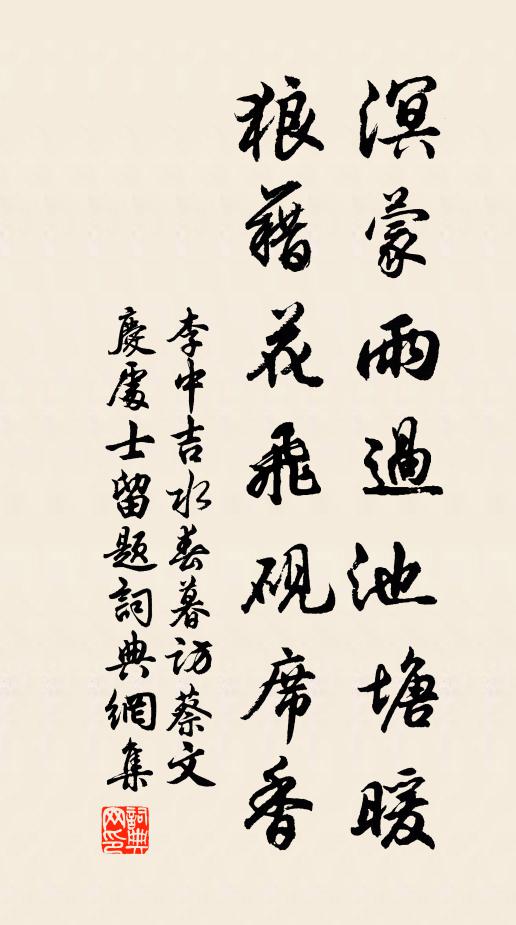 溟蒙雨過池塘暖
狼藉花飛硯席香
李中吉水春暮訪蔡文
慶處士留題詞典網集
詞典
網印